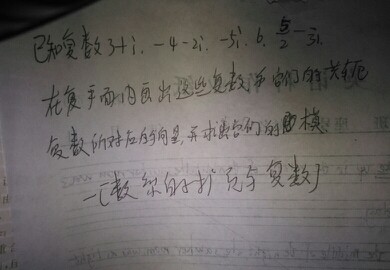 已知复数3+i,-4-2i,-5i,6,5/2-3i.
在复平面内画出这些复数和它们的共轭
复数所对应的向量,并求出它们的模.
—[数系的扩充与复数]